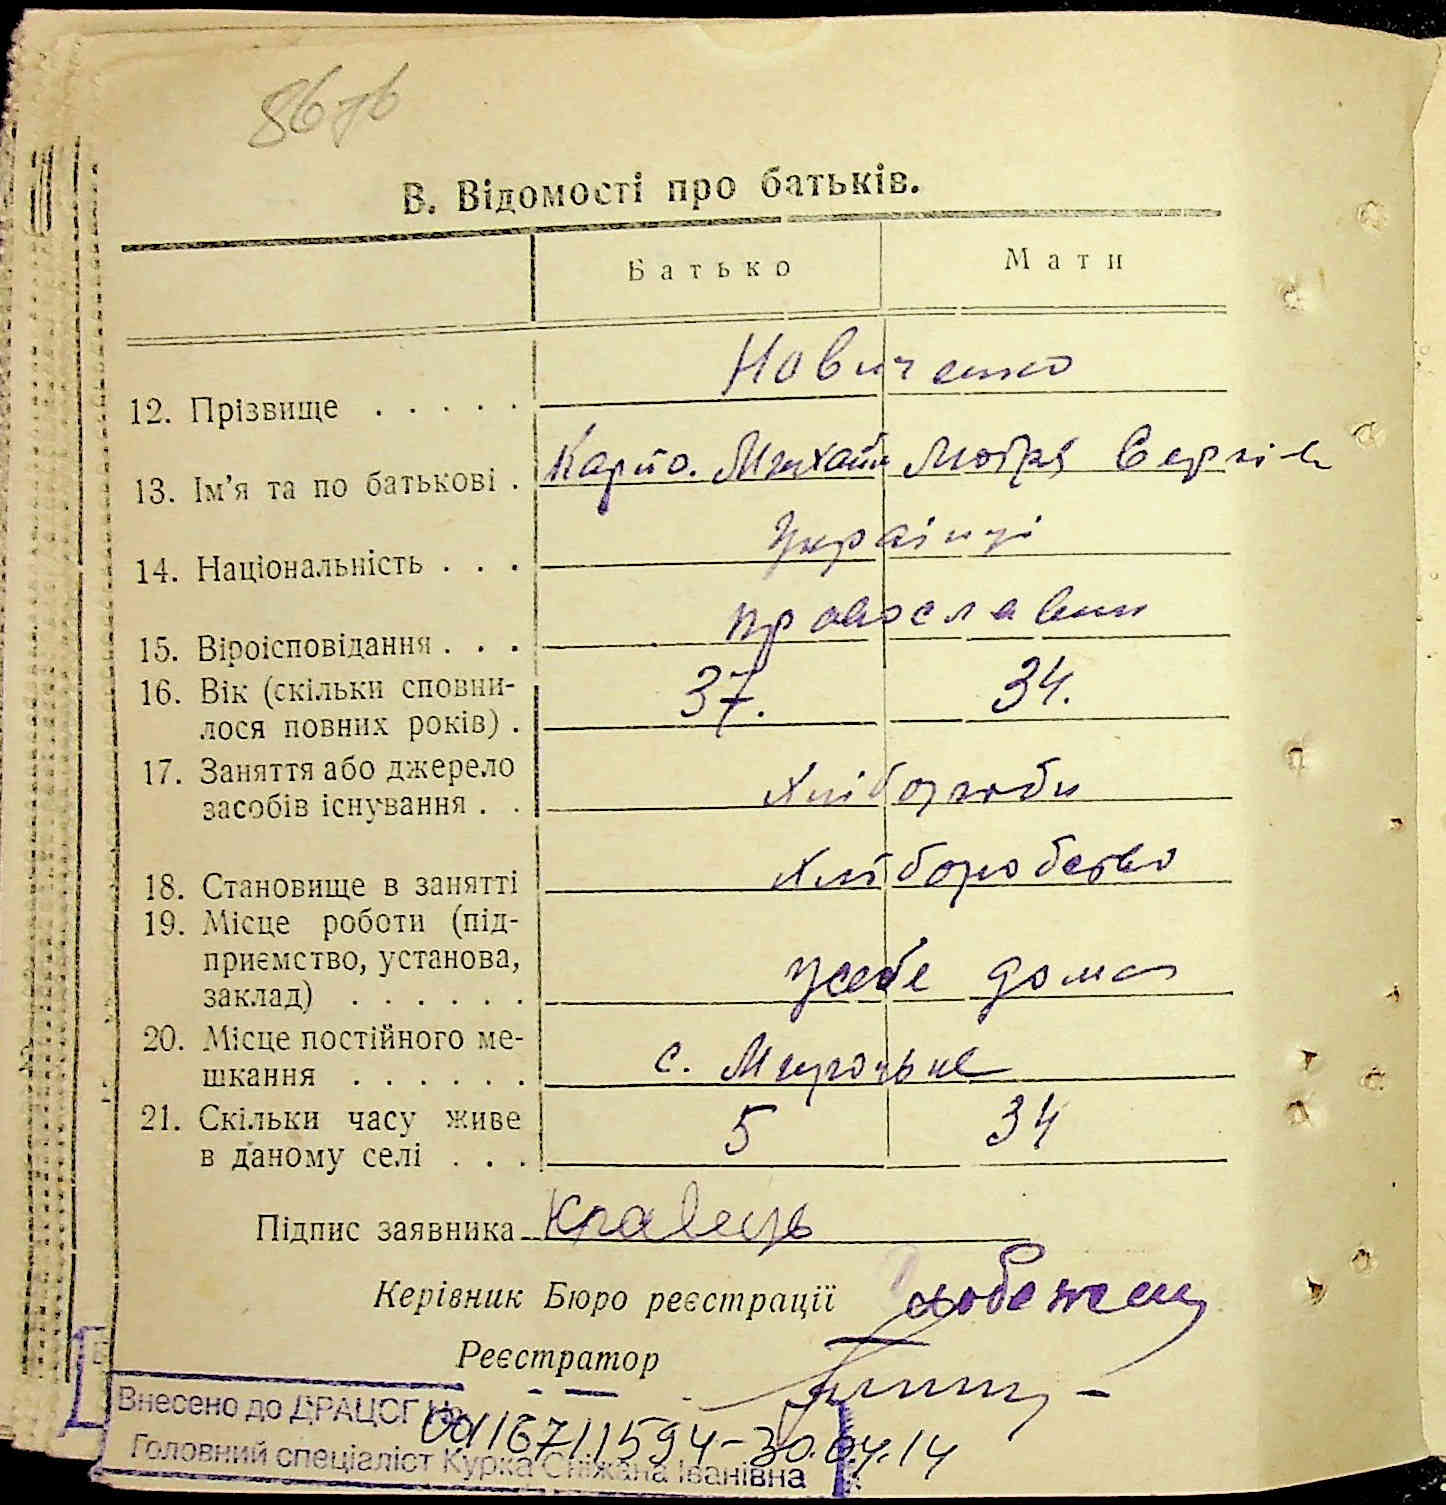 В. Відомості про батьків.
Батько Мати
Новиченко
12. Прізвище . . . . .
Карпо. Михайл Мотря Сергіів
13. Ім'я та по батькові .
Українці
14. Національність . . .
православни
15. Віроісповідання . . .
16. Вік (скільки сповни-
лося повних років) . 37. 34.
17. Заняття або джерело
засобів існування . . Хлібороби
18. Становище в занятті Хліборобство
19. Місце роботи (під-
приємство, установа,
заклад) . . . . . . у себе дома
20. Місце постійного ме-
шкання . . . . . . с.
21. Скільки часу живе 5 34
в даному селі . . .
Підпис заявника Кравець
Керівник Бюро реєстрації
Реєстратор
Внесено до ДРАЦСГ №
00116711594-30.04.14
Головний спеціаліст Курка Сніжана Іванівна